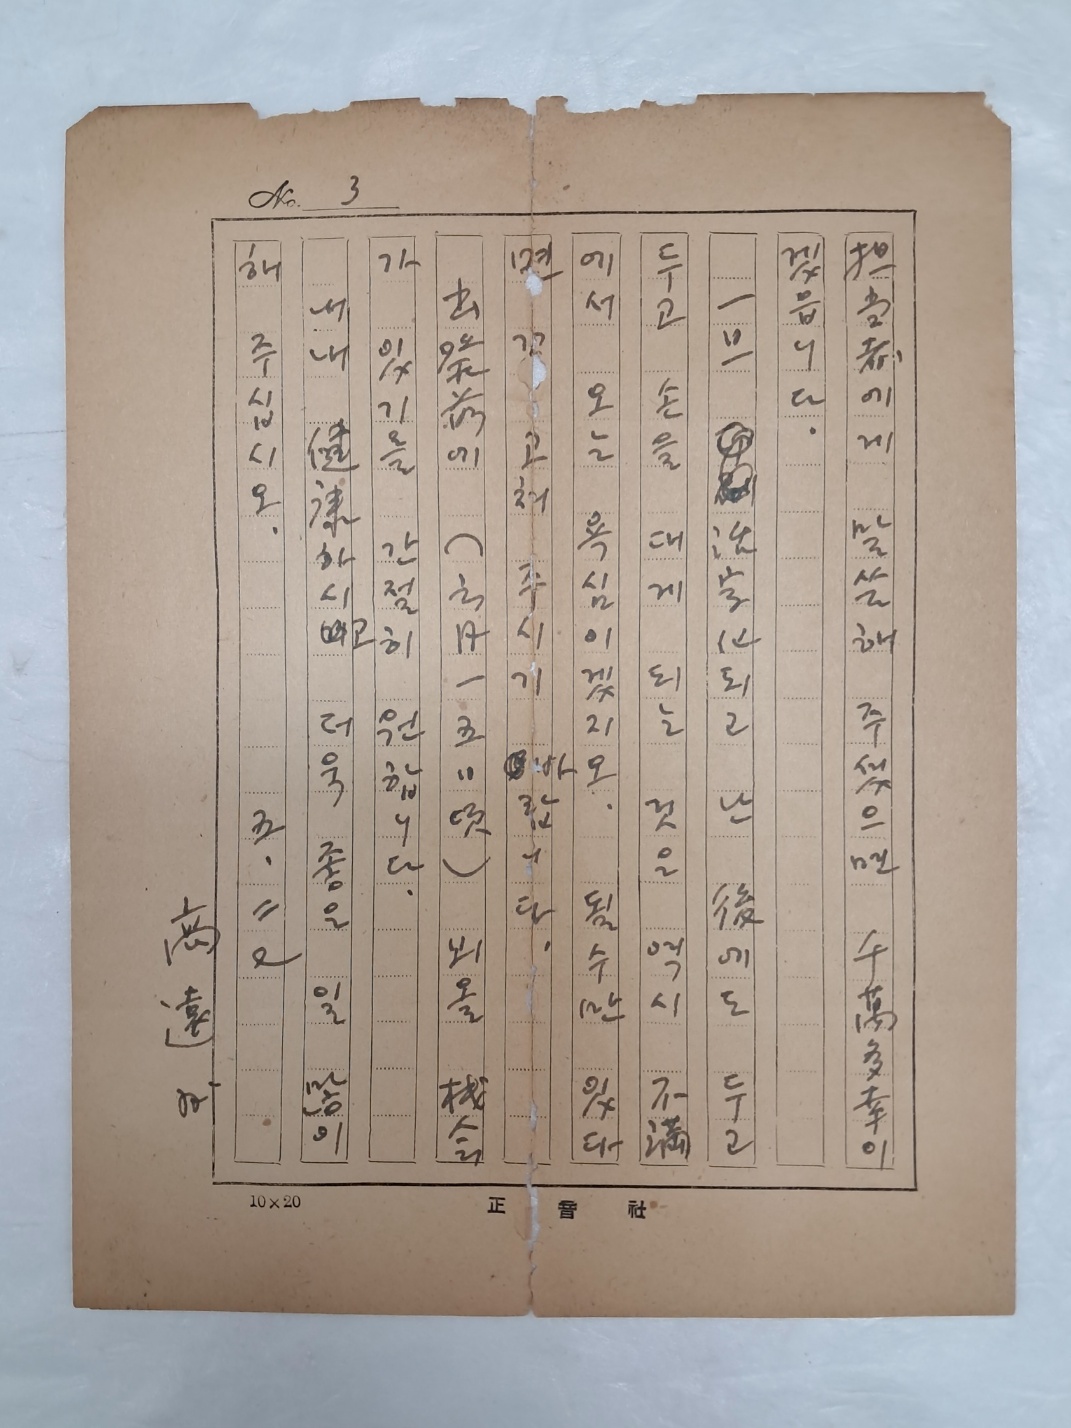 No. 3
担当者에게 말씀해 주셨으면 千萬多幸이
겠읍니다.
一旦 活字化되고 난 後에도 두고
두고 손을 대게 되는 것은 역시 不滿
에서 오는 욕심이겠지오. 될 수만 있다
면 고쳐 주시기 바랍니다.
出発前에 (六月一五日頃) 뵈올 機会
가 있기를 간절히 원합니다.
내내 健康하시고 더욱 좋은 일 많이
해 주십시오. 五.
高遠
10×20
正音社